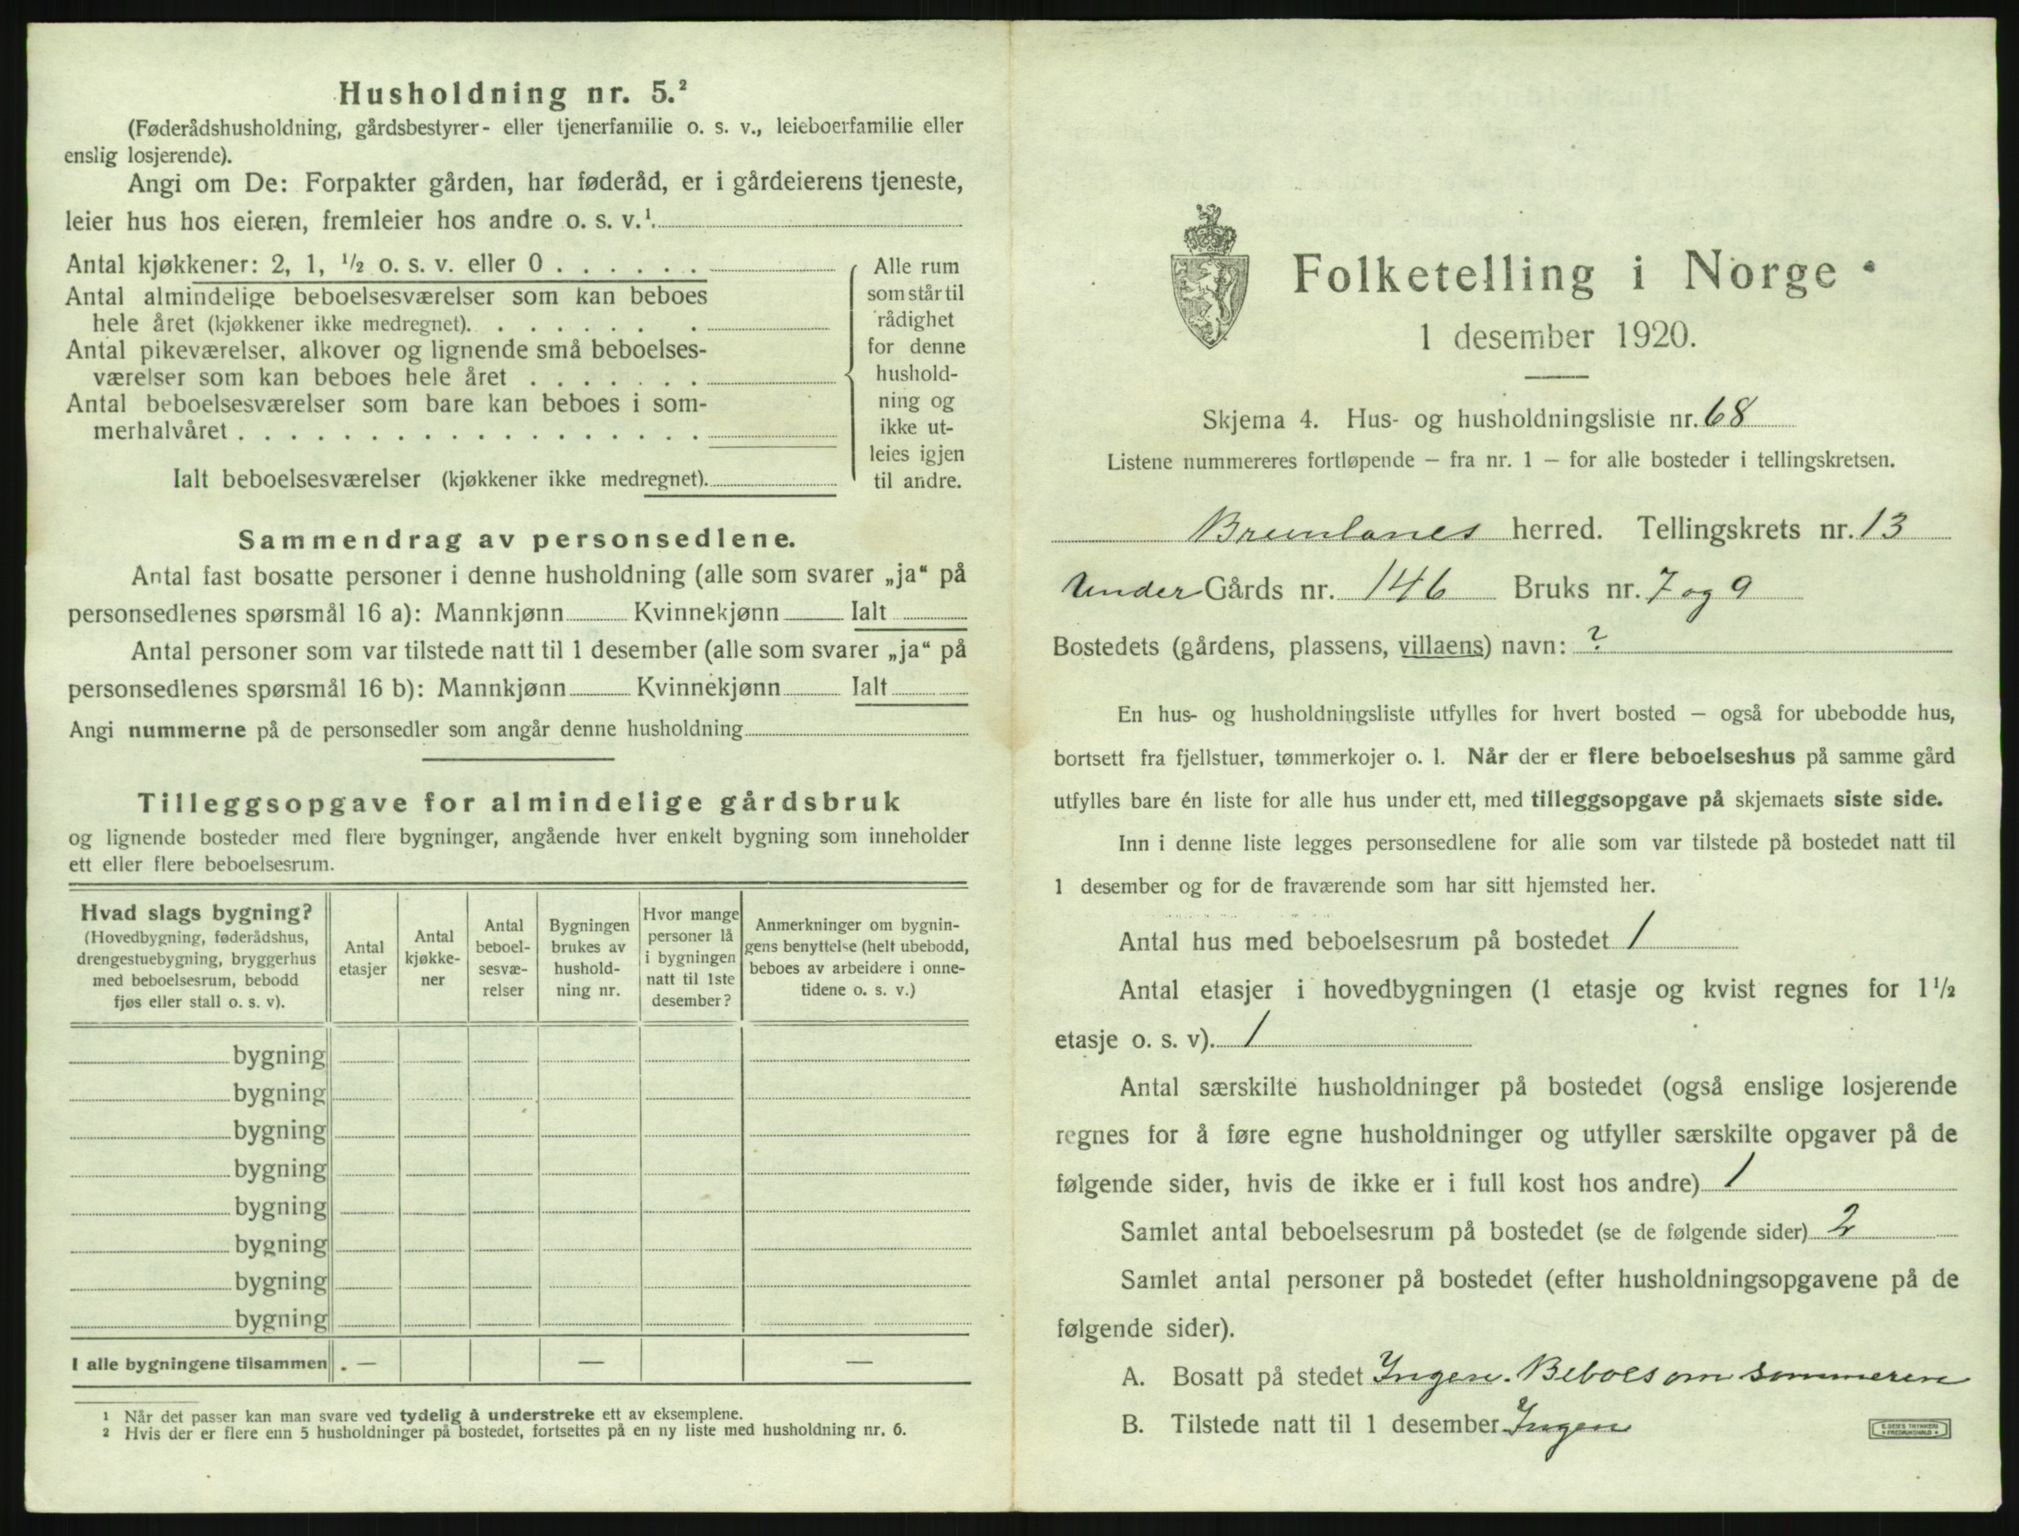 Husholdning nr. 5.²
(Føderådshusholdning, gårdsbestyrer- eller tjenerfamilie o. s. v., leieboerfamilie eller
enslig losjerende).
Angi om De: Forpakter gården, har føderåd, er i gårdeierens tjeneste,
leier hus hos eieren, fremleier hos andre o. s. v.¹.
Antal kjøkkener: 2, 1, ½ o. s. v. eller 0 . . . . . .
Antal almindelige beboelsesværelser som kan beboes
hele året (kjøkkener ikke medregnet). . . . . . . .
Antal pikeværelser, alkover og lignende små beboelses-
værelser som kan beboes hele året . . . . . . .
Antal beboelsesværelser som bare kan beboes i som-
merhalvåret . . . . . . . . . . . . . . . . . .
Ialt beboelsesværelser (kjøkkener ikke medregnet).
Alle rum
som står til
rådighet
for denne
hushold-
ning og
ikke ut-
leies igjen
til andre.
Sammendrag av personsedlene.
Antal fast bosatte personer i denne husholdning (alle som svarer „ja“ på
personsedlenes spørsmål 16 a): Mannkjønn Kvinnekjønn Ialt
Antal personer som var tilstede natt til 1 desember (alle som svarer „ja“ på
personsedlenes spørsmål 16 b): Mannkjønn Kvinnekjønn Ialt
Angi nummerne på de personsedler som angår denne husholdning
Tilleggsopgave for almindelige gårdsbruk
og lignende bosteder med flere bygninger, angående hver enkelt bygning som inneholder
ett eller flere beboelsesrum.
Hvad slags bygning?
(Hovedbygning, føderådshus,
drengestuebygning, bryggerhus
med beboelsesrum, bebodd
fjøs eller stall o. s. v).
Antal
etasjer
Antal
kjøkke-
ner
Antal
beboel-
sesvæ-
relser
Bygningen
brukes av
hushold-
ning nr.
Hvor mange
personer lå
i bygningen
natt til 1ste
desember?
Anmerkninger om bygnin-
gens benyttelse (helt ubebodd,
beboes av arbeidere i onne-
tidene o. s. v.)
bygning
bygning
bygning
bygning
bygning
bygning
bygning
bygning
I alle bygningene tilsammen . — — —
¹ Når det passer kan man svare ved tydelig å understreke ett av eksemplene.
² Hvis der er flere enn 5 husholdninger på bostedet, fortsettes på en ny liste med husholdning nr. 6.
Folketelling i Norge
1 desember 1920.
Skjema 4. Hus- og husholdningsliste nr. 68
Listene nummereres fortløpende — fra nr. 1 — for alle bosteder i tellingskretsen.
Brunlanes herred. Tellingskrets nr. 13
Under Gårds nr. 146 Bruks nr. 7 og 9
Bostedets (gårdens, plassens, villaens) navn: ?
En hus- og husholdningsliste utfylles for hvert bosted — også for ubebodde hus,
bortsett fra fjellstuer, tømmerkojer o. l. Når der er flere beboelseshus på samme gård
utfylles bare én liste for alle hus under ett, med tilleggsopgave på skjemaets siste side.
Inn i denne liste legges personsedlene for alle som var tilstede på bostedet natt til
1 desember og for de fraværende som har sitt hjemsted her.
Antal hus med beboelsesrum på bostedet 1
Antal etasjer i hovedbygningen (1 etasje og kvist regnes for 1½
etasje o. s. v). 1
Antal særskilte husholdninger på bostedet (også enslige losjerende
regnes for å føre egne husholdninger og utfyller særskilte opgaver på de
følgende sider, hvis de ikke er i full kost hos andre) 1
Samlet antal beboelsesrum på bostedet (se de følgende sider) 2
Samlet antal personer på bostedet (efter husholdningsopgavene på de
følgende sider).
A. Bosatt på stedet Ingen. Beboes om sommeren
B. Tilstede natt til 1 desember Ingen